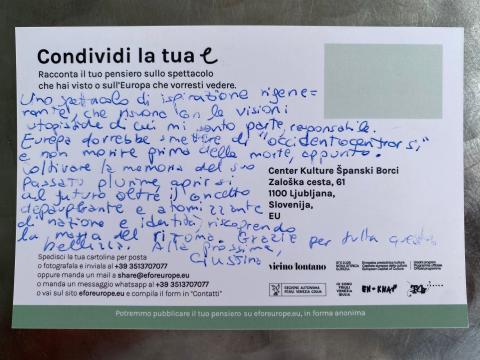 Condividi la tua e
Racconta il tuo pensiero sullo spettacolo
che hai visto o sull'Europa che vorresti vedere.
Uno spettacolo di ispirazione rigene=
rante, che risuona con le visioni
utopistiche di cui mi sento parte responsabile.
Europa dovrebbe smettere di "occidentocentrarsi,"
e non morire prima della morte, appunto.
Coltivare la memoria del suo
passato plurime, aprirsi
al futuro oltre il concetto
depauperante e atomizzante
di nazione e identità, riscoprendo
la magia del ritorno. Grazie per tutta questa
bellezza. Alla prossima,
Giustina
Center Kulture Španski Borci
Zaloška cesta, 61
1100 Ljubljana,
Slovenija,
EU
Spedisci la tua cartolina per posta
o fotografala e inviala al +39 3513707077
oppure manda un mail a share@eforeurope.eu
o manda un messaggio whatsapp al +39 3513707077
o vai sul sito eforeurope.eu e compila il form in "Contatti"
vicino/lontano
REGIONE AUTONOMA
FRIULI VENEZIA GIULIA
IO SONO
FRIULI
VENEZIA
GIULIA
EN-KNAP
Potremmo pubblicare il tuo pensiero su eforeurope.eu, in forma anonima